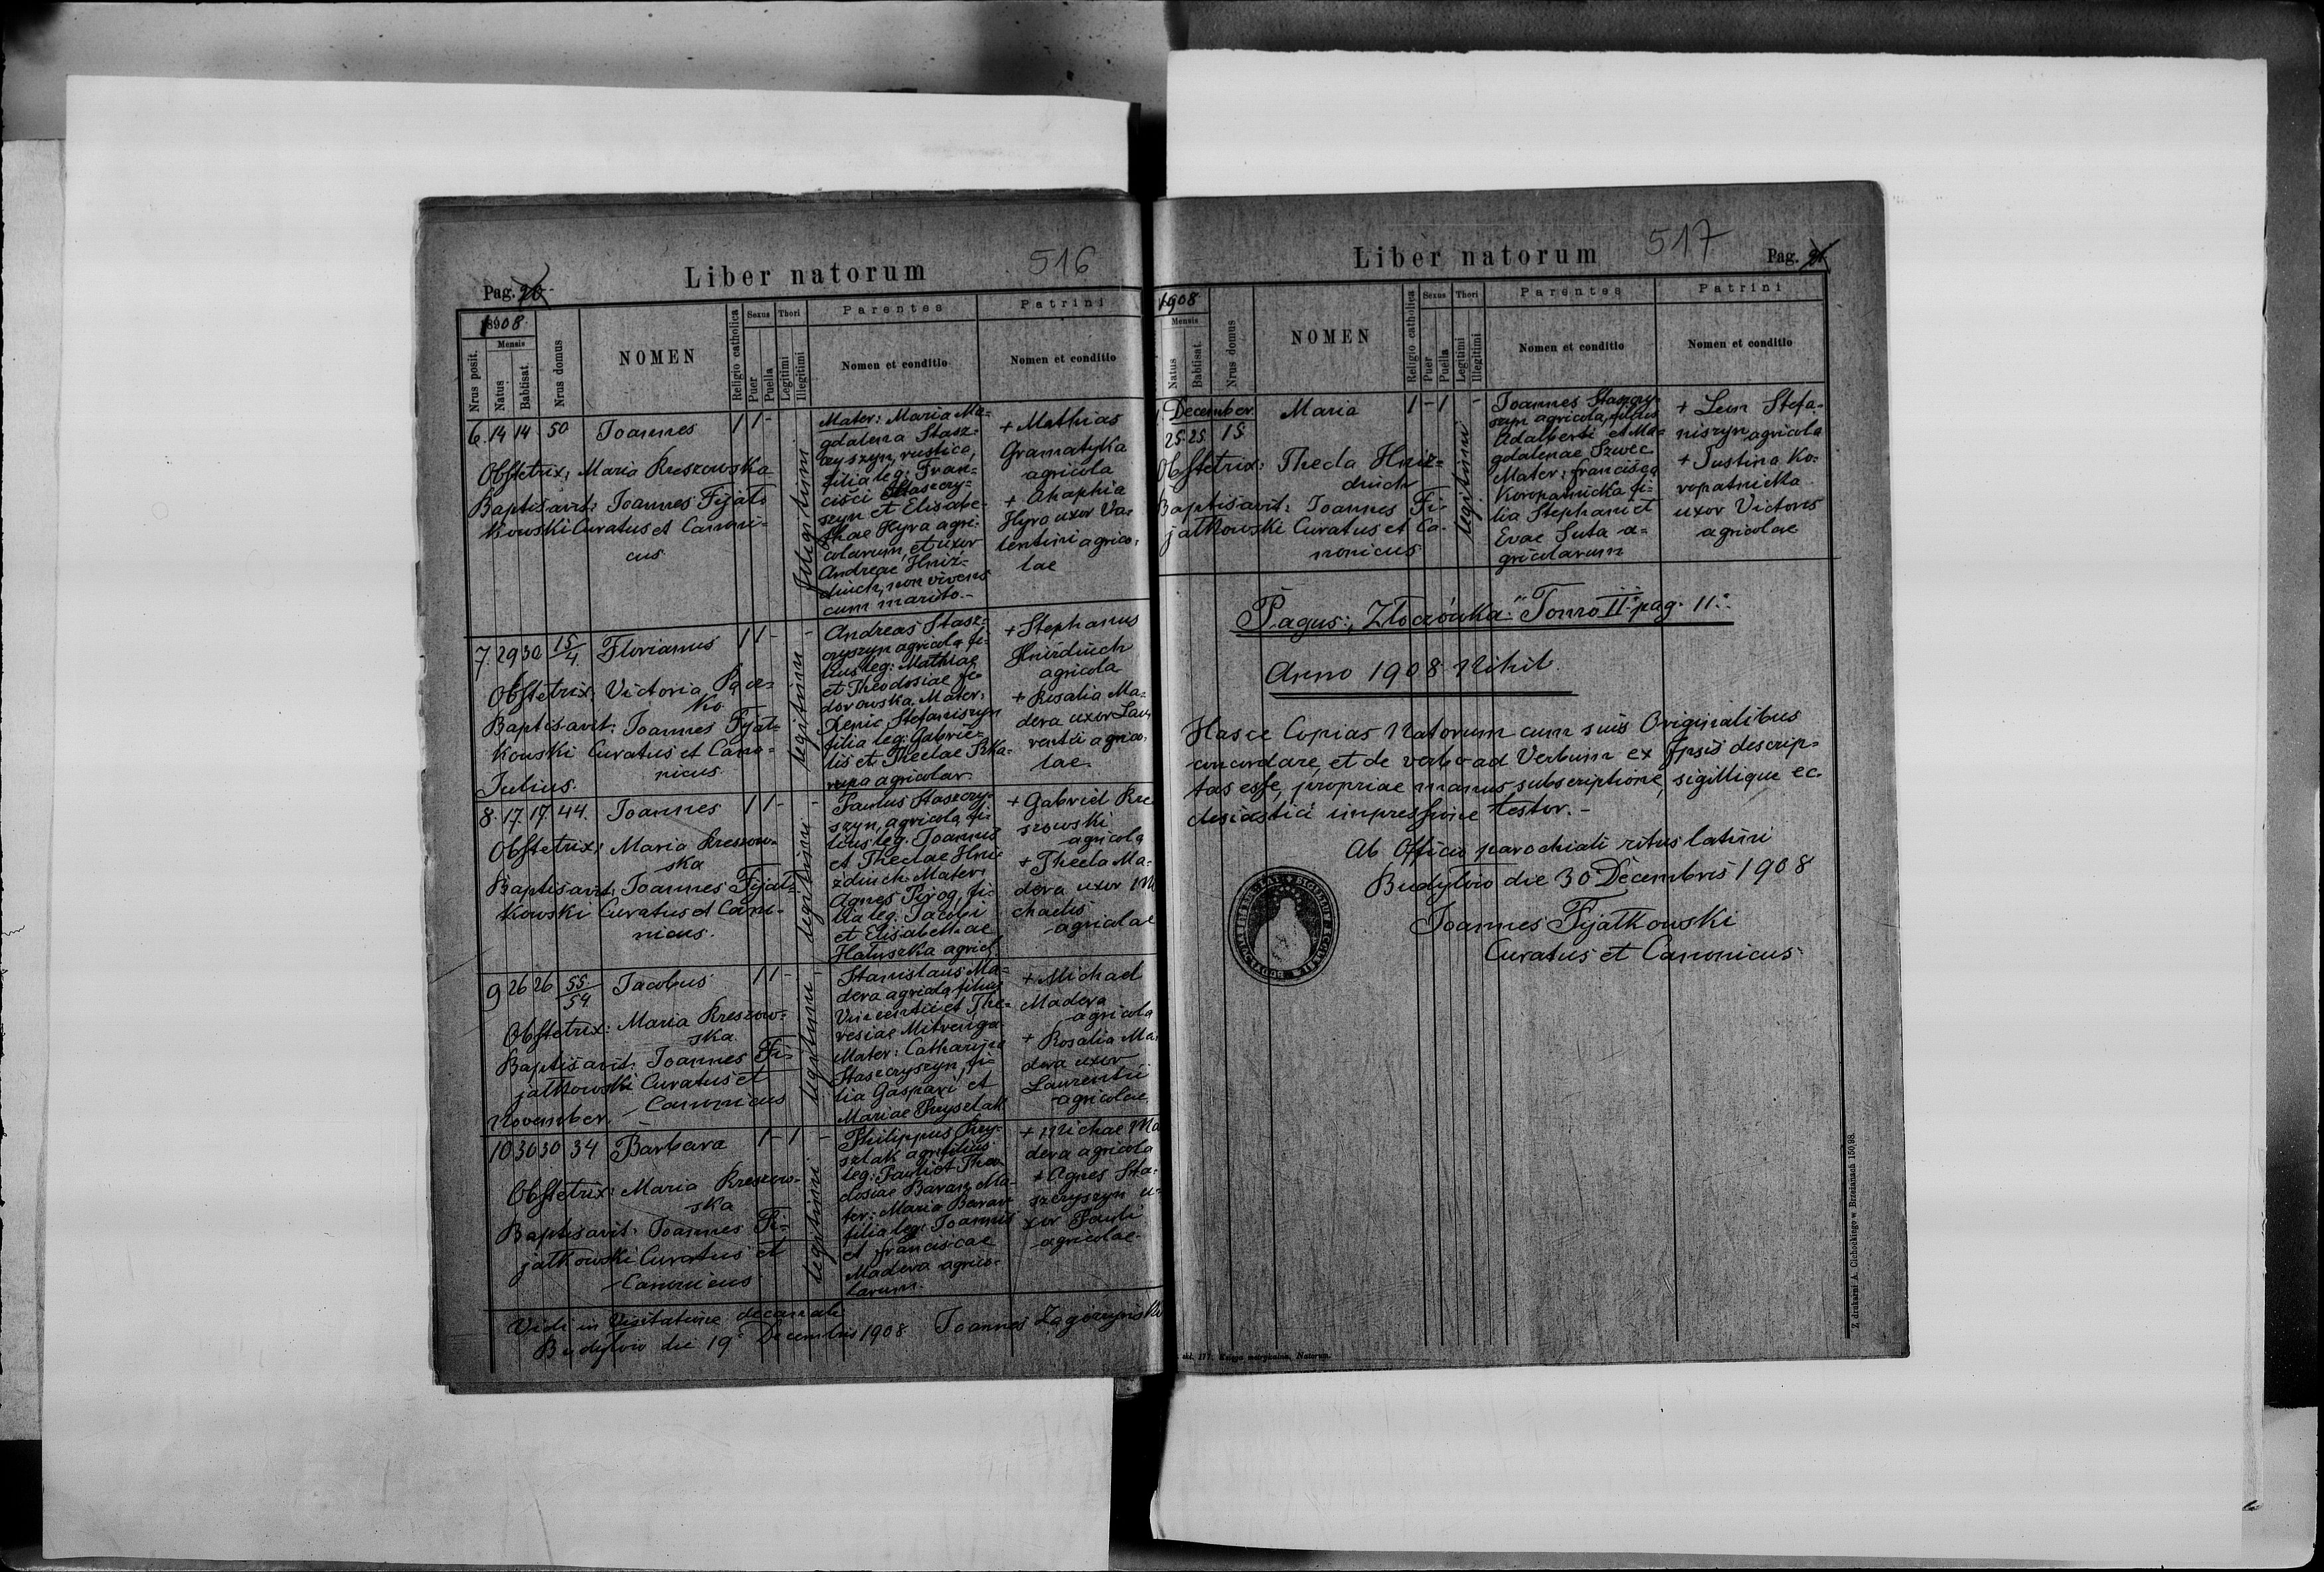 Pag. 20
Liber natorum
516
1908
Nrus posit.
Mensis
Natus
Babtisat.
Nrus domus
NOMEN
Religio catholica
Sexus
Puer
Puella
Thori
Legitimi
Illegitimi
Parentes
Nomen et conditio
Patrini
Nomen et conditio
6. 14 14 50 Joannes 1 1 -
Obstetrix: Maria Kreszowska
Baptisavit: Joannes Fijał=
kowski Curatus et Canoni=
cus
Illegitimi
Mater: Maria Ma=
gdalena Stasz=
czyszyn, rustica,
filia leg: Fran=
cisci Staszczy=
szyn et Elisabe=
thae Hyra agri=
colarum, et uxor
Andreae Hniz=
diuch, non vivens
cum marito.-
+ Mathias
Gramatyka
agricola
+ Ahaphia
Hyra uxor Va=
lentini agrico=
lae
7. 29 30 15/4 Florianus 1 1 - -
Obstetrix: Victoria
ko
Baptisavit: Joannes Fijał=
kowski Curatus et Cano=
nicus
legitimi
Andreas Stasz=
czyszyn agricola fi=
lius leg: Mathiae
et Theodosiae Fe=
dorowska Mater:
Xenia Stefaniszyn
filia leg: Gabrie=
lis et Theclae Szka=
rupa agricolar.
+ Stephanus
Hnizdiuch
agricola
+ Rosalia Ma=
dera uxor Lau=
rentii agrico=
lae.
Julius.
8. 17. 17. 44. Joannes 1 1 - -
Obstetrix: Maria Kreszow=
ska
Baptisavit: Joannes Fijał=
kowski Curatus et Cano=
nicus.
legitimi
Paulus Staszczy=
szyn, agricola fi=
lius leg. Joannis
et Theclae Hni=
zdiuch. Mater:
Agnes Pirog, fi=
lia leg. Jacobi
et Elisabethae
Hałuszka agricol.
+ Gabriel Kre=
szowski
agricola
+ Thecla Ma=
dera uxor Mi
chaelis
agricolae
9 26 26 55/54 Jacobus 1 1 - -
Obstetrix: Maria Kreszow=
ska
Baptisavit: Joannes Fi=
jałkowski Curatus et
Canonicus
legitimi
Stanislaus Ma=
dera agricola filius
Vincentii et The=
resiae Mitrenga
Mater: Catharina
Staszczyszyn, fi=
lia Gaspari et
Mariae Krysztak
+ Michael
Madera
agricola
+ Rosalia Ma=
dera uxor
Laurentii
agricolae
November.
10 30 30 34 Barbara 1 - 1 -
Obstetrix: Maria Kreszow=
ska
Baptisavit: Joannes Fi=
jałkowski Curatus et
Canonicus
legitimi
Philippus Kry=
sztak agr. filius
leg: Pauli et Theo=
dosiae Baran, Ma=
ter: Maria Baran
filia leg: Joannis
et Franciscae
Madera agrico=
larum.
+ Michael Ma
dera agricola
+ Agnes Sta=
szczyszyn u=
xor Pauli
agricolae.
Vidi in Visitatione decanali
Budyłow die 19 Decembris 1908 Joannes
Liber natorum
517
Pag. 21
1908
Mensis
Natus
Babtisat.
Nrus domus
NOMEN
Religio catholica
Sexus
Puer
Puella
Thori
Legitimi
Illegitimi
Parentes
Nomen et conditio
Patrini
Nomen et conditio
December
25 25 15 Maria 1 - 1 -
Obstetrix: Thecla Hniz=
diuch
Baptisavit: Joannes Fi=
jałkowski Curatus et Ca=
nonicus
legitimi
Joannes Staszczy=
szyn agricola, filius
Adalberti et Ma=
gdalenae Szwec
Mater: Francisca
Koropatnicka fi=
lia Stephani et
Evae Suta a=
gricolarum
+ Leon Stefa=
niszyn agricola
+ Justina Ko=
ropatnicka
uxor Victoris
agricolae
Pagus: "Złoczówka" Tomo II pag. 11.
Anno 1908 Nihil.
Hasce Copias Natorum cum suis Originalibus
concordare, et de verbo ad Verbum ex Ipsis descrip=
tas esse, propriae manus subscriptione, sigillique ec=
clesiastici impressione testor.-
Ab Officio parochiali ritus latini
Budyłow die 30 Decembris 1908
Joannes Fijałkowski
Curatus et Canonicus
Z drukarni A. Cichockiego w Brzeżanach 150/98.
skl. 177. Księga metrykalna, Natorum.